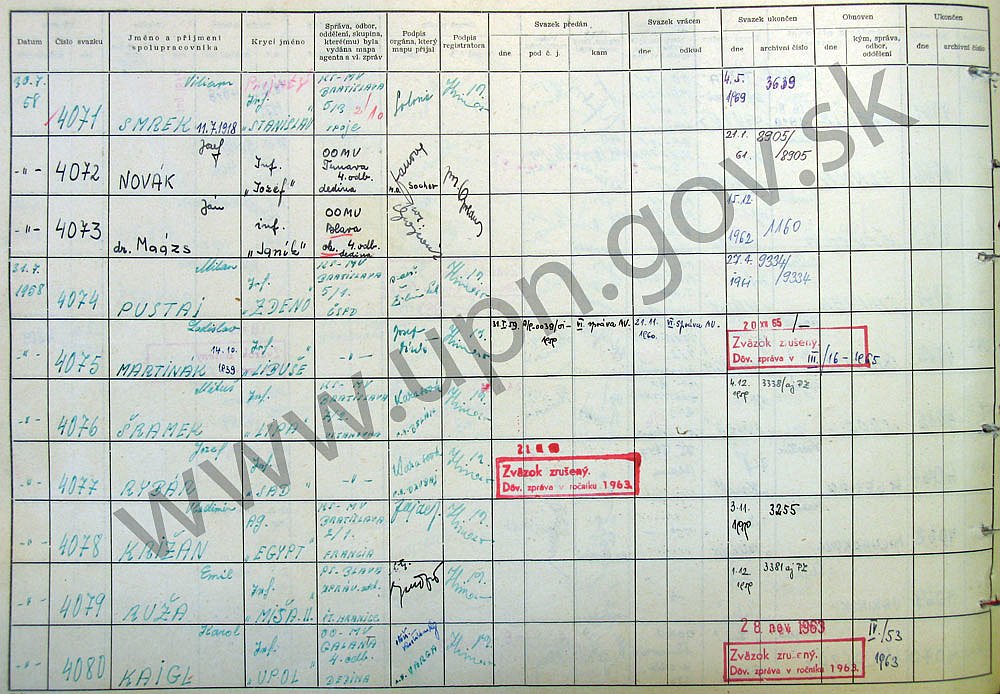 Datum
Číslo svazku
Jméno a příjmení spolupracovníka
Krycí jméno
Správa, odbor, oddělení, skupina, které(mu) byla vydána mapa agenta a vl. zpráv
Podpis orgána, který mapu přijal
Podpis registratora
Svazek předán
dne
pod č. j.
kam
Svazek vrácen
dne
odkud
Svazek ukončen
dne
archivní číslo
Obnoven
dne
kým, správa, odbor, oddělení
Ukončen
dne
archivní číslo
30.7.
58
4071
Viliam
SMREK 11.7.1918
Inf.
„STANISLAV"
KS-MV
BRATISLAVA
5/3 2/10
spoje
4.5.
1969
3639
-"-
4072
Jozef
NOVÁK
Inf.
„Jozef"
OOMV
Trnava
4.odb.
dedina
Socher
21.1.
61.
8905/
8905
-"-
4073
Ján
dr. Maázs
inf.
„Janík"
OOMV
Blava
ok. 4.odb.
dedina
15.12.
1962
1160
31.7.
1958
4074
Milan
PUSTAI
Inf.
„ZDENO"
KS-MV
BRATISLAVA
5/1.
ČSPD
27.4.
1961
9334
/9334
-"-
4075
Ladislav
14.10.
MARTINÁK 1939
Inf.
„LIBUŠE"
-"-
Jozef
VI. správa MV.
21.11.
1960.
VI. správa MV.
20 XII 65 /-
Zväzok zrušený.
Dôv. zpráva v III/16-1965
-"-
4076
ŠRAMEK
Inf.
„LIPA"
KS-MV
BRATISLAVA
4.12.
3338/aj PZ
-"-
4077
Jozef
RYBÁR
Inf.
„SAD"
-"-
21
Zväzok zrušený.
Dôv. zpráva v ročníku 1963.
-"-
4078
Vladimír
KRIŽAN
Ag.
„EGYPT"
KS-MV
BRATISLAVA
2/1.
FRANCIA
3.11.
3255
-"-
4079
Emil
RUŽA
Inf.
„MIŠA.II.
PS-BLAVA
ZPRAV.odd.
ŠT.HRANICE
1.12.
3381 aj PZ
-"-
4080
Karol
KAIGL
Inf.
„UPOL"
OO-MV
GALANTA
4-odb.
DEDINA
VARGA
28. nov. 1963
Zväzok zrušený.
Dôv. zpráva v ročníku 1963.
IV./53
1963
www.upn.gov.sk